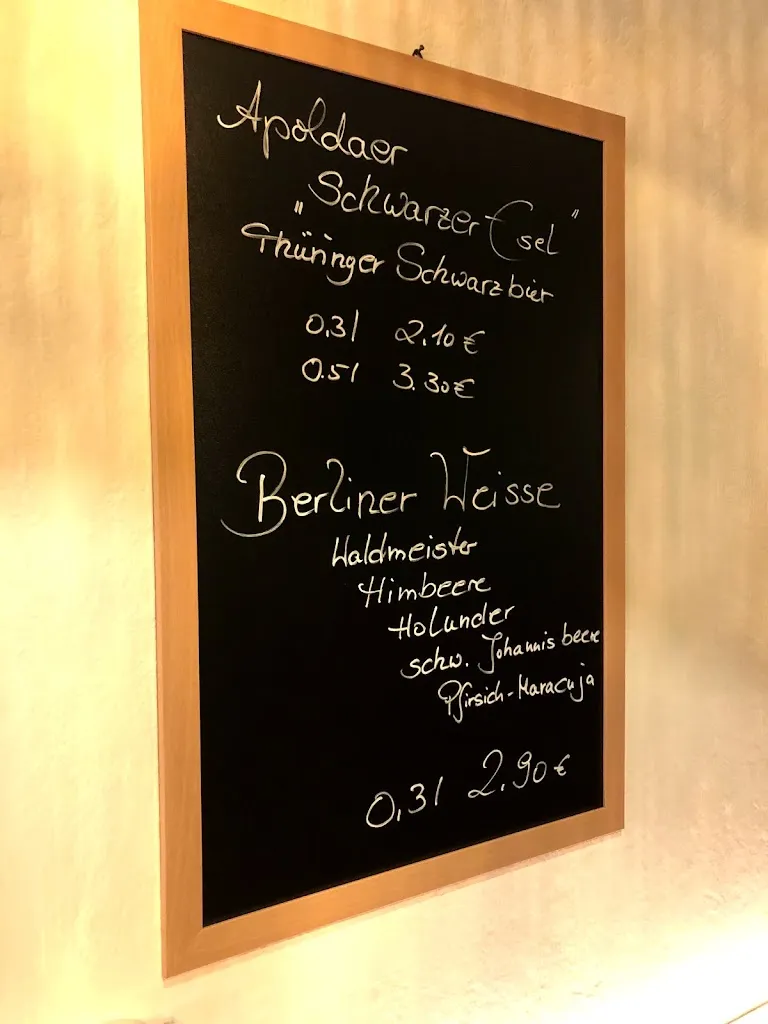 Apoldaer
„Schwarzer Esel"
Thüringer Schwarzbier
0,3l 2.10 €
0.5l 3.30 €
Berliner Weisse
Waldmeister
Himbeere
Holunder
schw. Johannisbeere
Pfirsich-Maracuja
0,3l 2.90 €